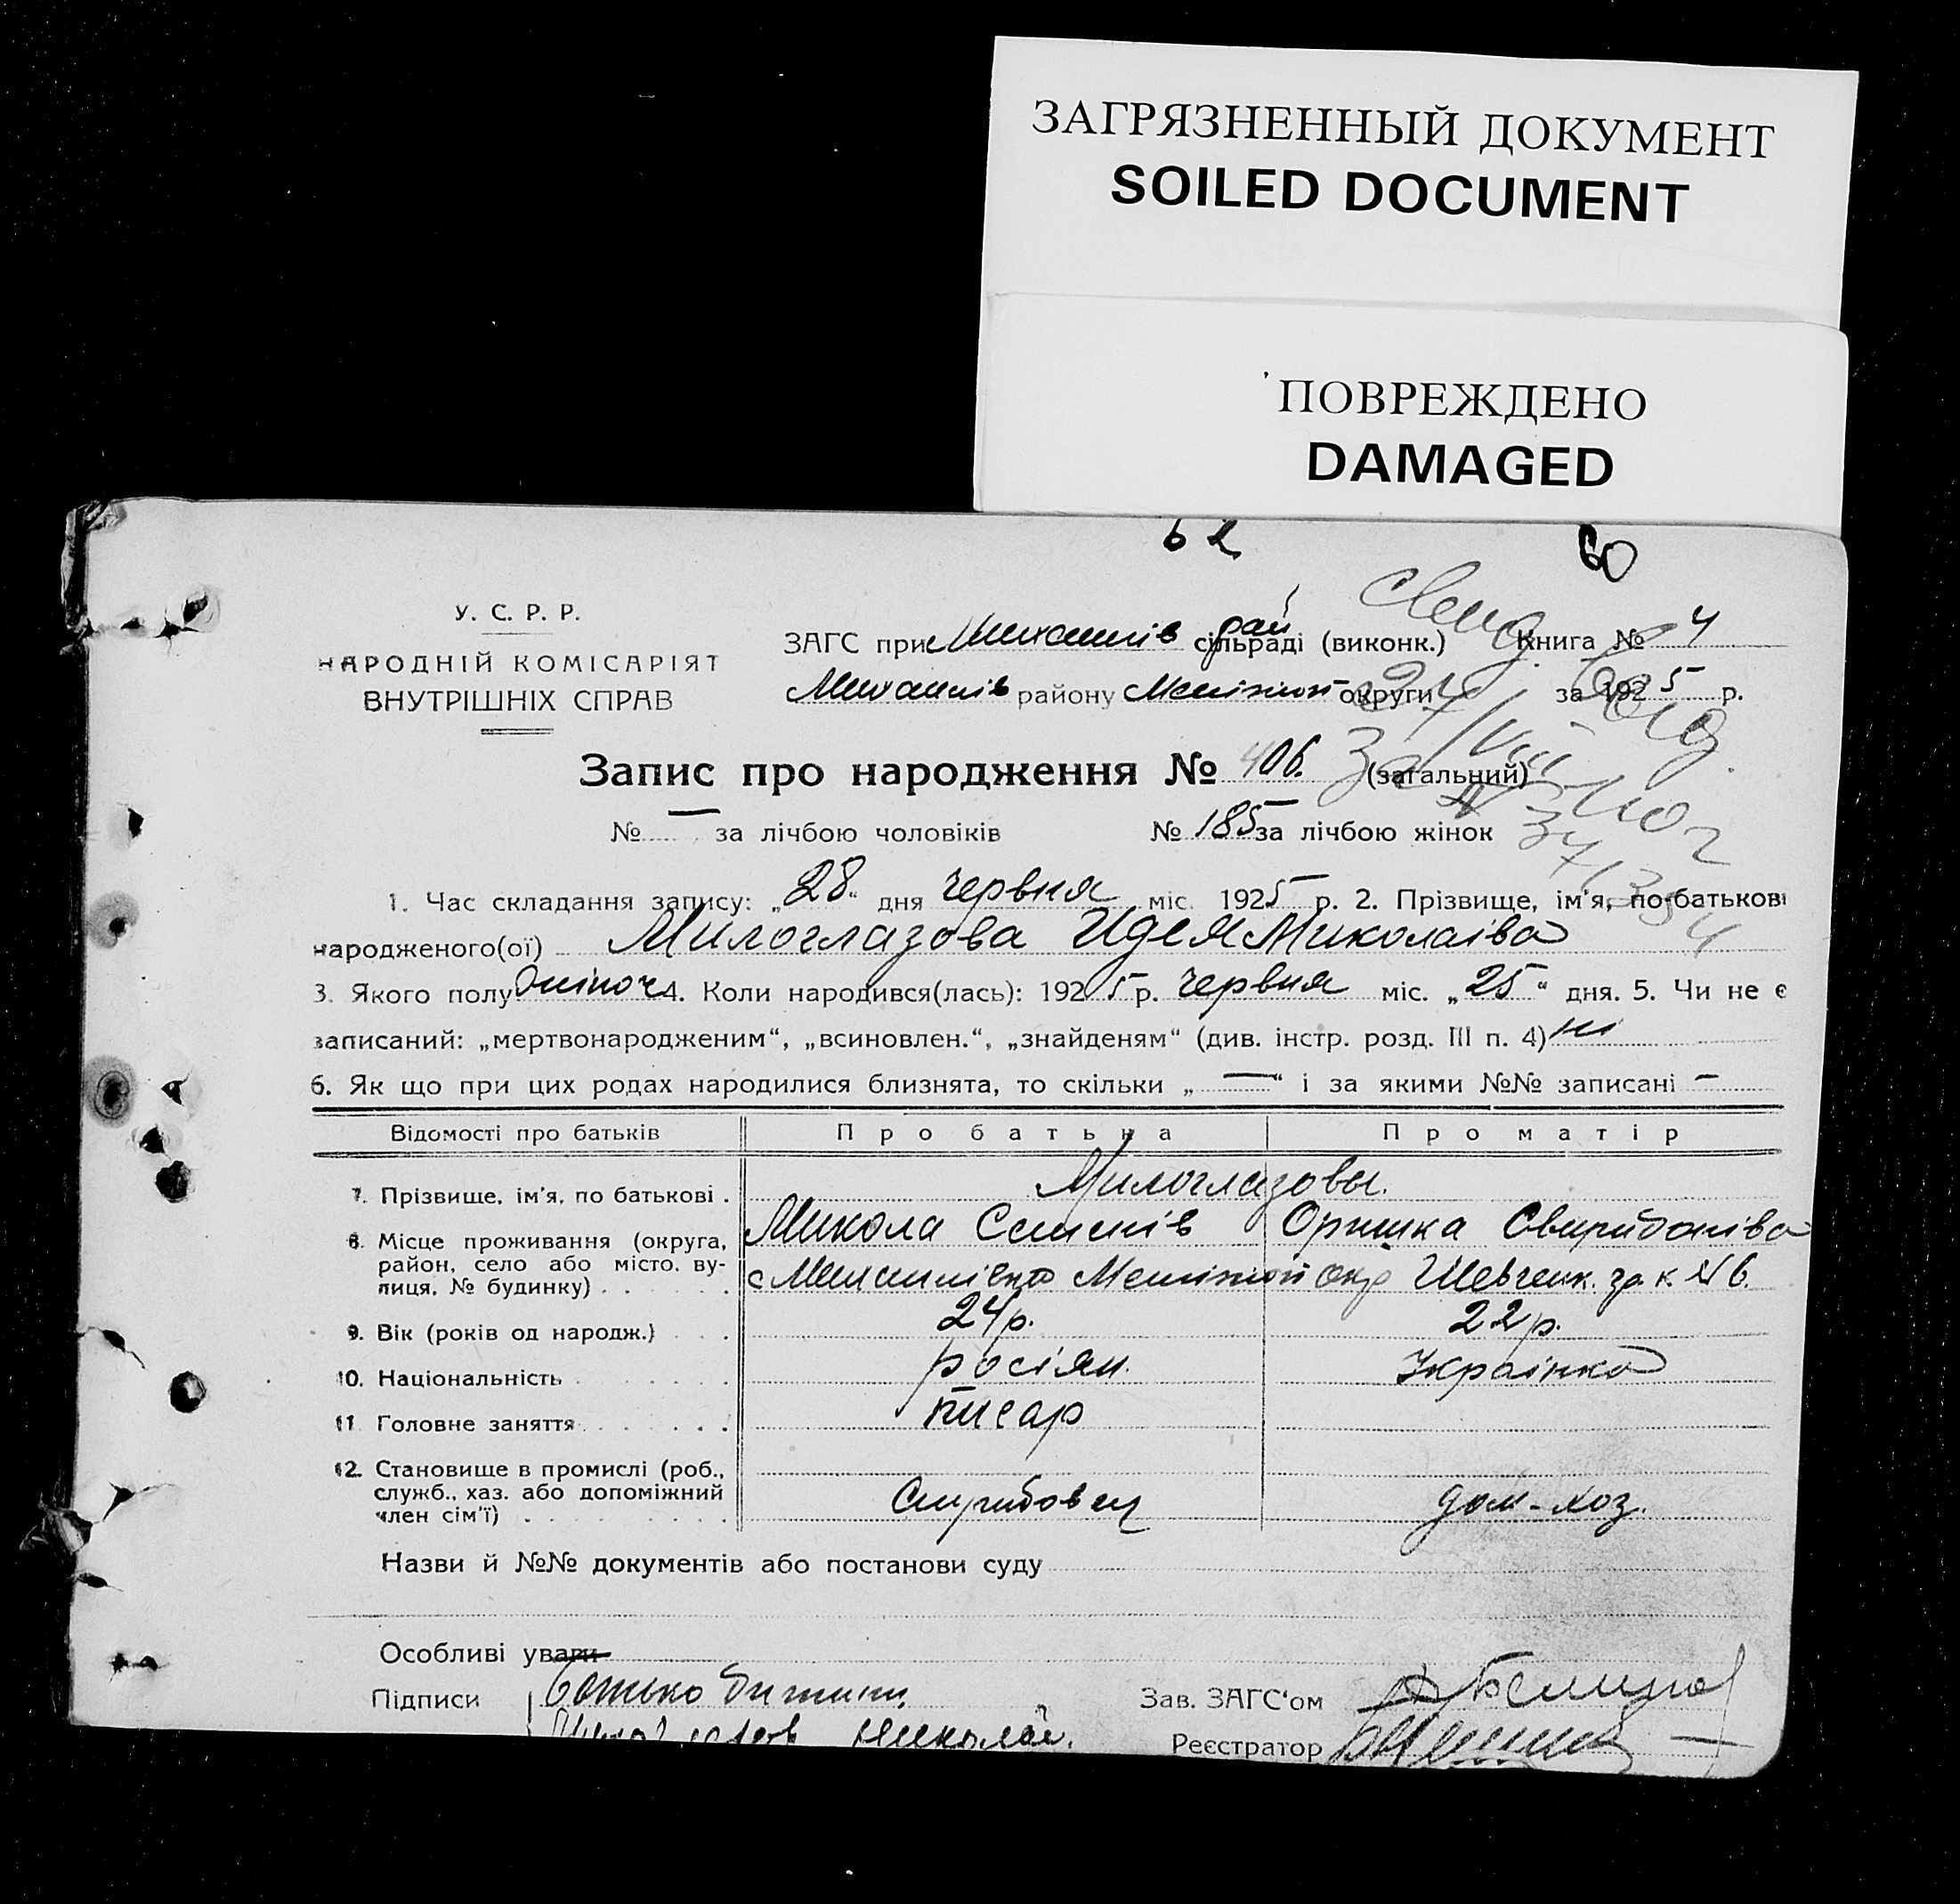 ЗАГРЯЗНЕННЫЙ ДОКУМЕНТ
SOILED DOCUMENT
ПОВРЕЖДЕНО
DAMAGED
62 60
У. С. Р. Р.
НАРОДНІЙ КОМІСАРІЯТ
ВНУТРІШНІХ СПРАВ
ЗАГС при Михайлів рай сільраді (виконк.) Книга № 4
Михайлів району Мелітоп округи за 1925 р.
Запис про народження № 406. (загальний)
№ — за лічбою чоловіків № 185 за лічбою жінок
1. Час складання запису: „28“ дня червня міс. 1925 р. 2. Прізвище, ім'я, по-батькові
народженого(ої) Милоглазова Идея Миколаіва
3. Якого полу жіноч 4. Коли народився(лась): 1925 р. червня міс. „25“ дня. 5. Чи не є
записаний: „мертвонародженим“, „всиновлен.“, „знайденям“ (див. інстр. розд. III п. 4) ні
6. Як що при цих родах народилися близнята, то скільки „—“ і за якими №№ записані —
Відомості про батьків Про батька Про матір
Милоглазовы.
7. Прізвище, ім'я, по батькові .
Микола Семенів Оришка Свиридонівa
8. Місце проживання (округа,
район, село або місто, ву-
лиця, № будинку)
с Михайлівка Мелітоп окр Шевченк. № 6.
9. Вік (років од народж.) 24 р. 22 р.
10. Національність росіян. Українка
11. Головне заняття писар
12. Становище в промислі (роб.,
служб., хаз. або допоміжний
член сім'ї)
Службовец дом-хоз.
Назви й №№ документів або постанови суду
Особливі уваги
Підписи Батько дитини Зав. ЗАГС'ом
Николай. Реєстратор